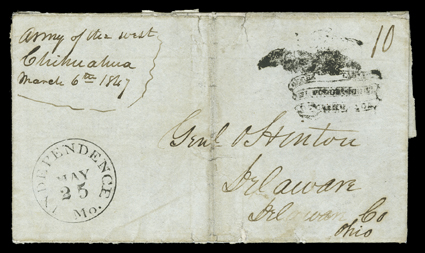 Army of the west
Chihuahua
March 6th 1847
10
INDEPENDENCE
MAY
25
Mo.
Genl O Hinton
Delaware
Delaware Co
Ohio